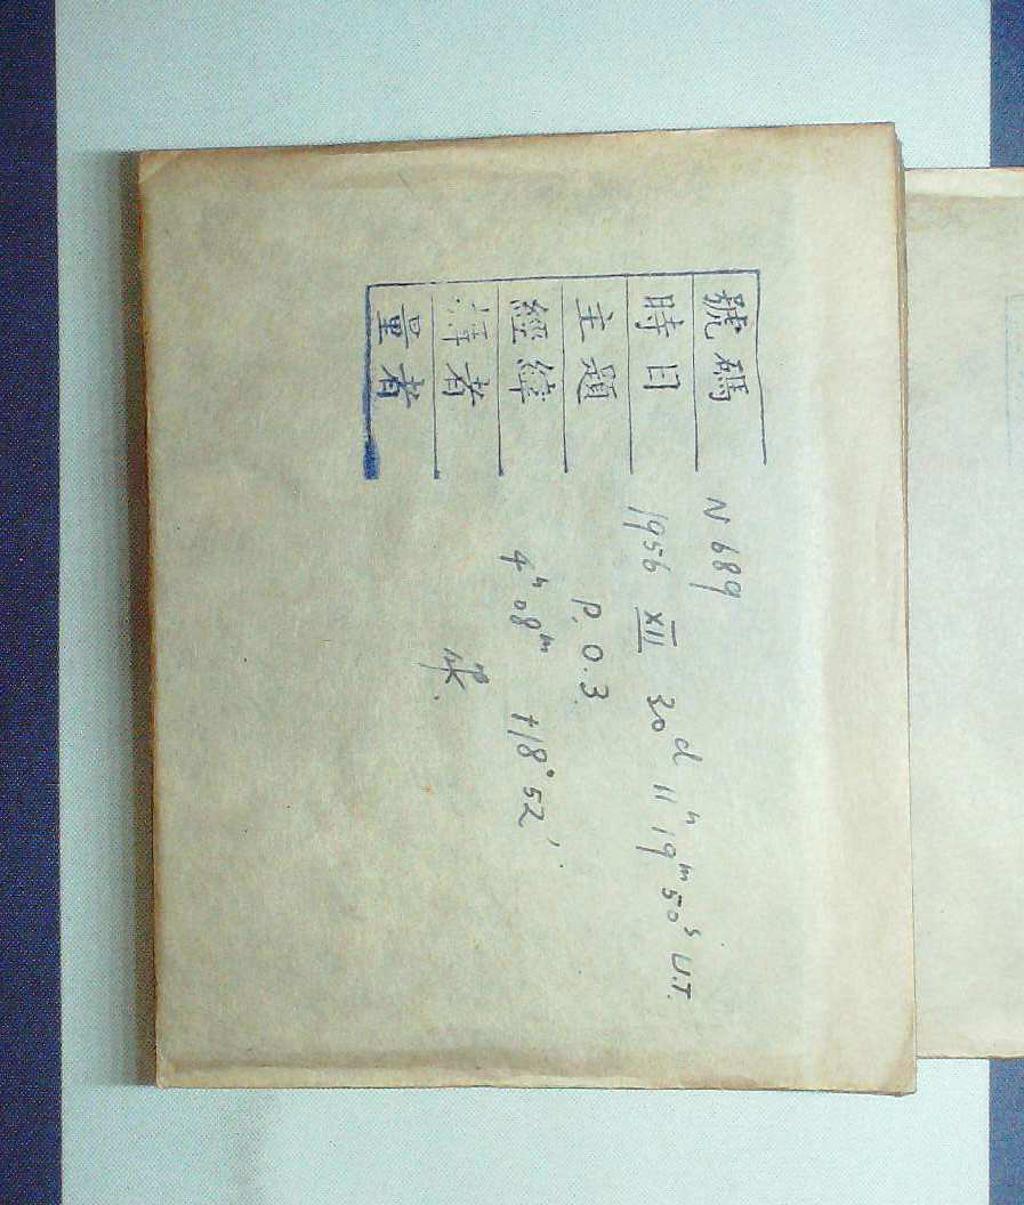 號碼 N 689
時日 1956 XII 30d 11h 19m 50s U.T.
主題 P. O. 3.
經緯 4h 08m +18° 52'
者
量者